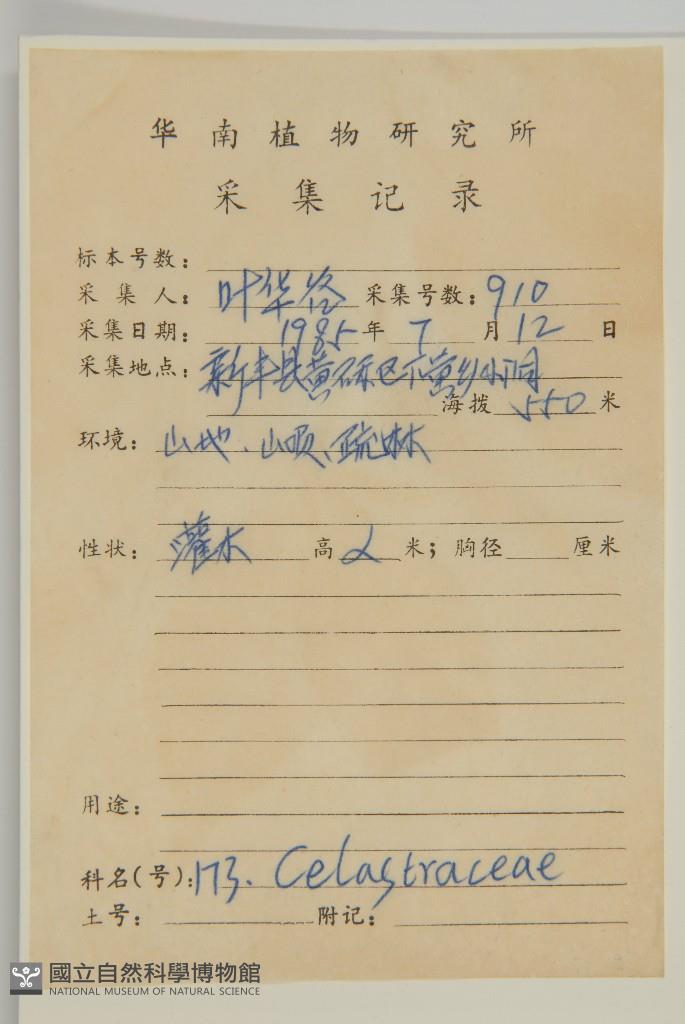 华南植物研究所
采集记录
标本号数：
采集人：叶华谷 采集号数：910
采集日期：1985年7月12日
采集地点：新丰县黄磜区
海拨550米
环境：山地、山顶、疏林
性状：灌木 高2米；胸径 厘米
用途：
科名(号)：173. Celastraceae
土号： 附记：
國立自然科學博物館
NATIONAL MUSEUM OF NATURAL SCIENCE